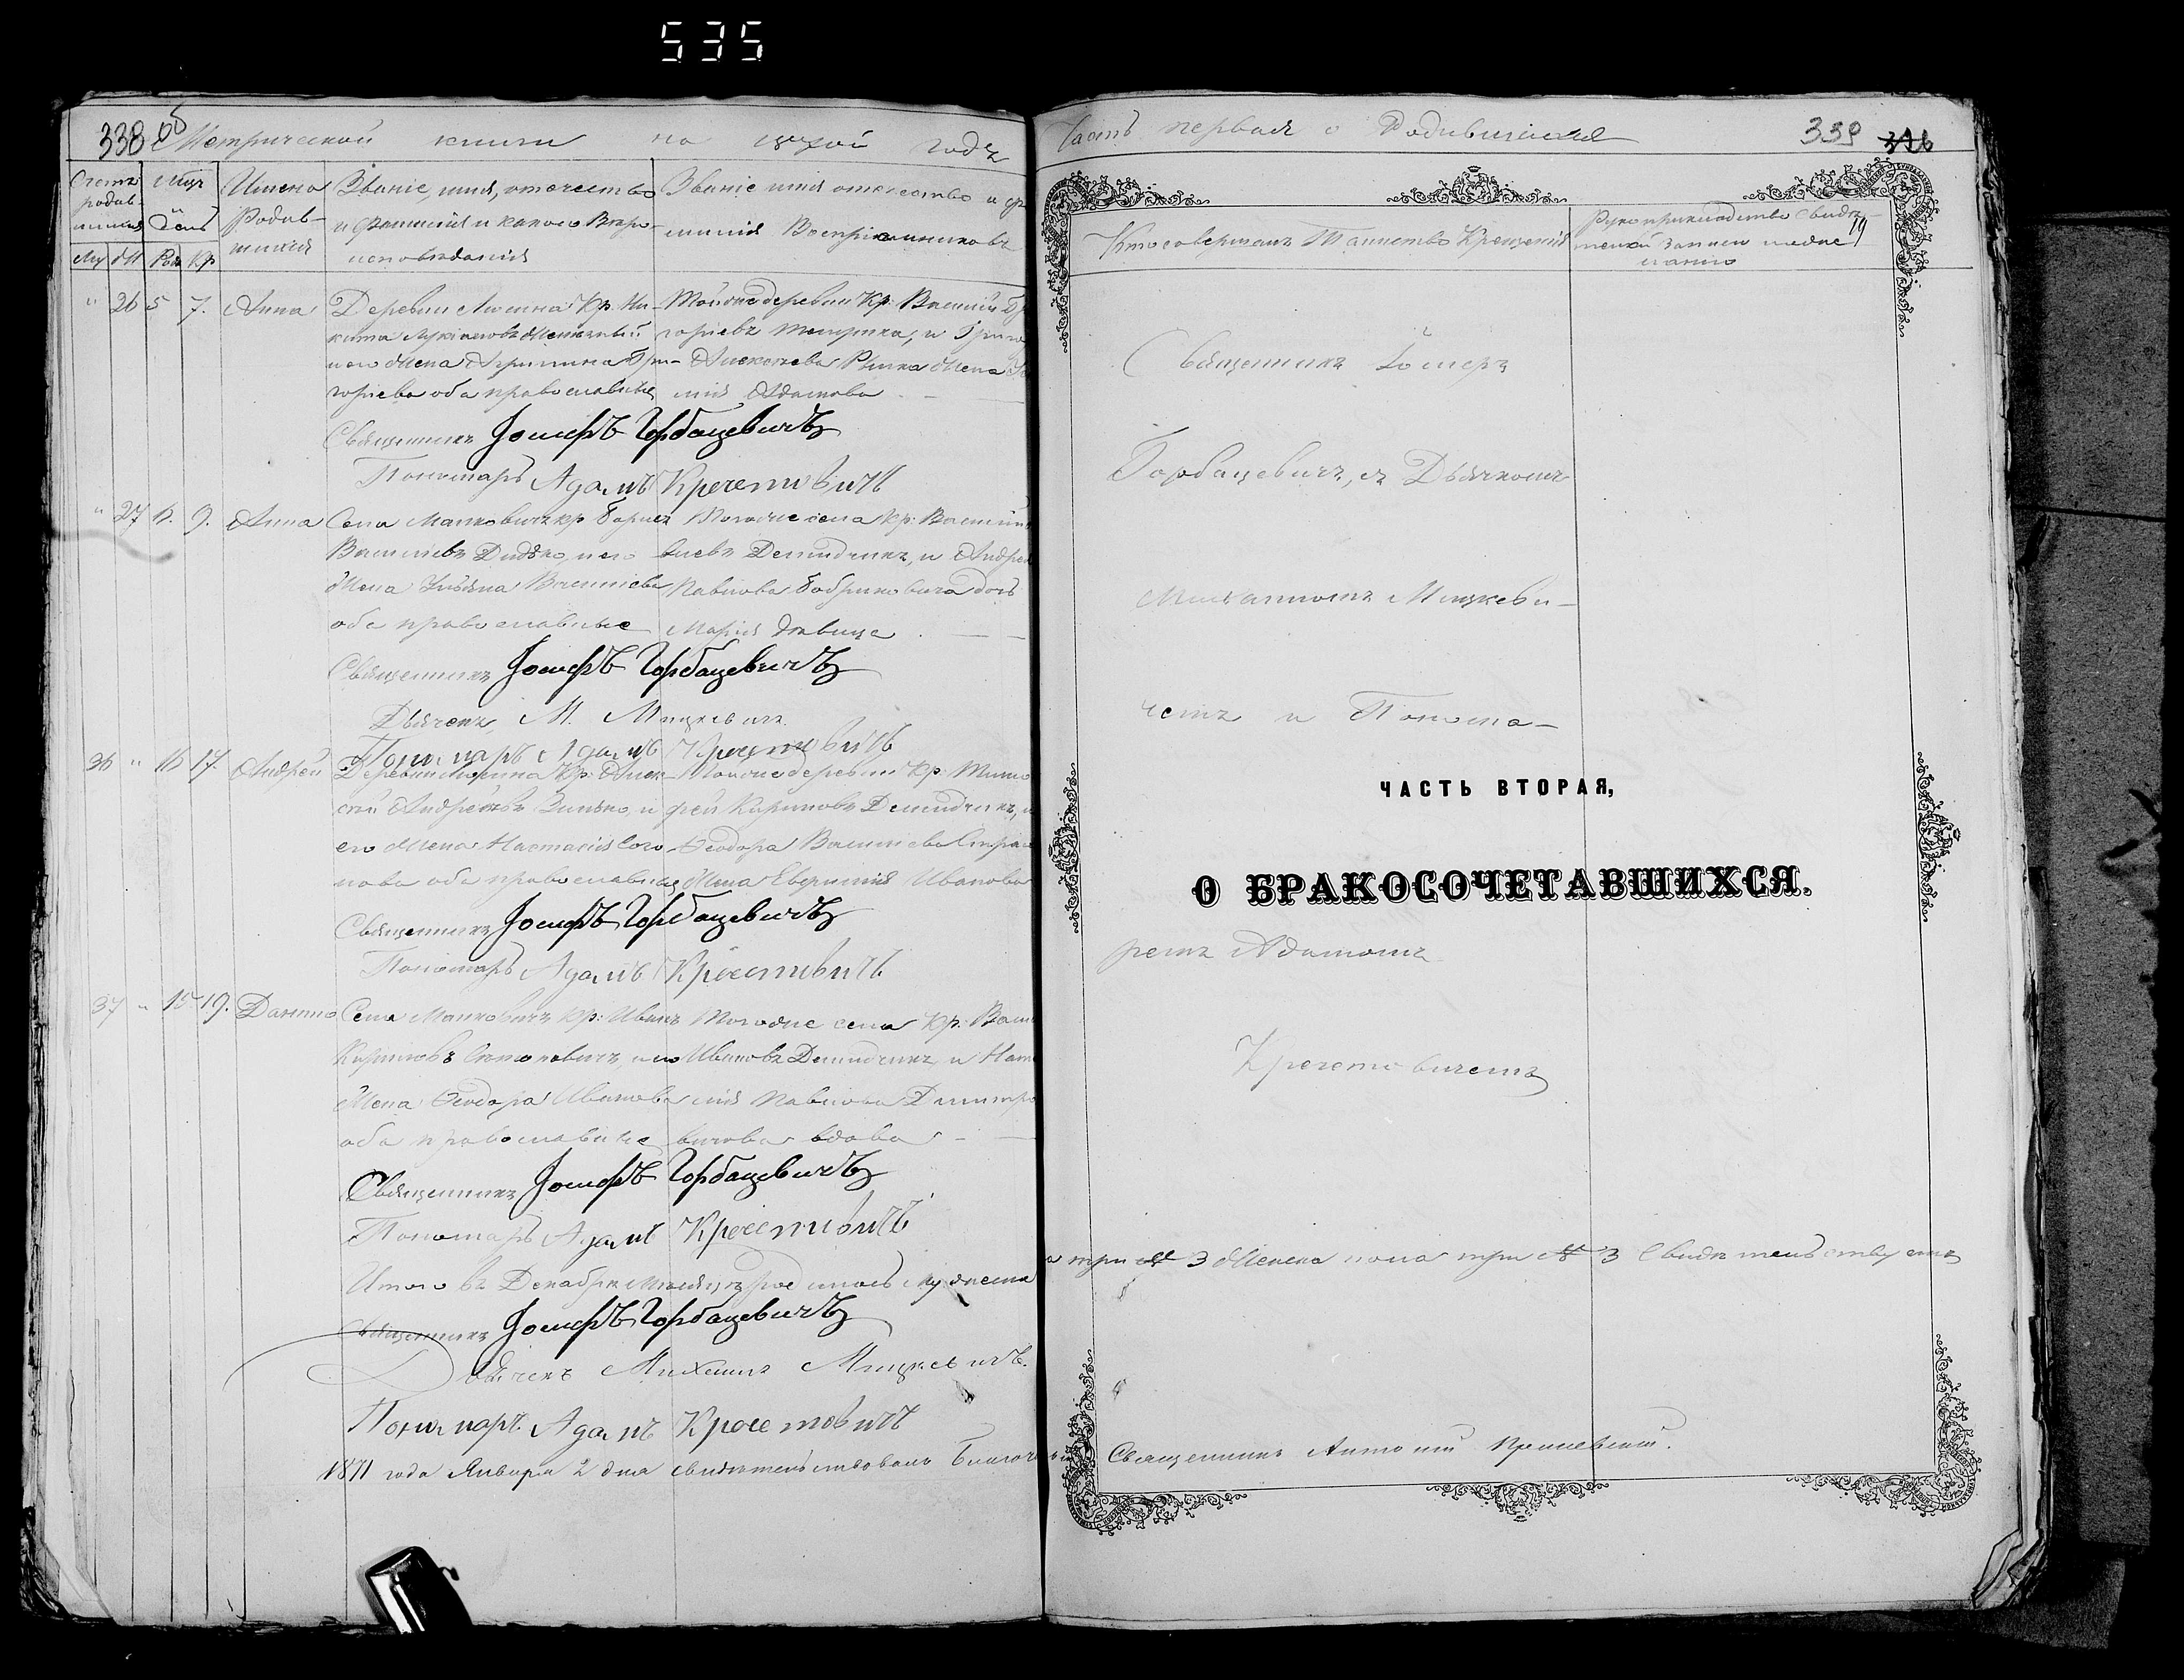 535
338 об Метрической книги на цѣлой годъ
Счетъ родив- шихся
Мцъ и день
Имена Родив- шихся
Званіе, имя, отечество и фамилія и какого Веро- исповѣданія
Званіе имя отечество и фа- милія Воспріемниковъ
Му Ж Рож Кр
" 26 5 7. Анна
Деревни Кр. Ни-
кита
его Жена Григо-
горіева оба православные
Тойже деревни Кр. Василій Гри-
горіевъ и
Алексѣева Жена
Адамова
Священникъ Іосифъ Горбацевичъ
Пономарь Адамъ Кречетовичъ
" 27 9. Анна
Села Малковичъ кр. Борисъ
Васильевъ Дидько, и его
Жена Ульяна Васильева
оба православные
Тогоже села Кр: Василій
Демидчикъ, и Андрея
Павлова Бобриковича дочь
Марія Дѣвица
Священникъ Іосифъ Горбацевичъ
Дьячекъ М. Мицкевичъ
Пономарь Адамъ Кречетовичъ
36 " 16 17. Андрей
Деревни Кр: Алек-
сѣй Андреевъ Зинько, и
его Жена Настасія
нова оба православные
Тойже деревни Кр: Тимо-
фей Кириловъ Демидчикъ, и
Ѳеодора Васильева
Жена Евфимія Иванова
Священникъ Іосифъ Горбацевичъ
Пономарь Адамъ Кречетовичъ
37 " 15 19. Данило
Села Малковичъ Кр: Иванъ
Кириловъ и его
Жена Ѳеодора Иванова
оба православные
Тогоже села Кр: Васи-
Ивановъ Демидчикъ и Ната-
лія Павлова Дмитро-
вичова вдова
Священникъ Іосифъ Горбацевичъ
Пономарь Адамъ Кречетовичъ
Итого въ Декабрѣ Мѣсяцѣ родилось Мужеска
Священникъ Іосифъ Горбацевичъ
Дьячекъ Михаилъ Мицкевичъ.
Пономарь Адамъ Кречетовичъ
1871 года Января 2 дня свидетельствовалъ Благочин
Часть первая о Родившихся
339 326
Кто совершалъ Таинство Крещенія
Рукоприкладство свидѣ-
телей записи по же-
ланію
19
Священникъ Іосифъ
Горбацевичъ, съ Дьячкомъ
Михаиломъ Мицкеви-
чемъ и Понома-
ЧАСТЬ ВТОРАЯ,
О БРАКОСОЧЕТАВШИХСЯ.
ремъ Адамомъ
Кречетовичемъ
а три № 3 Женска пола три № 3 Свидѣтельствуемъ
Священникъ Антоній